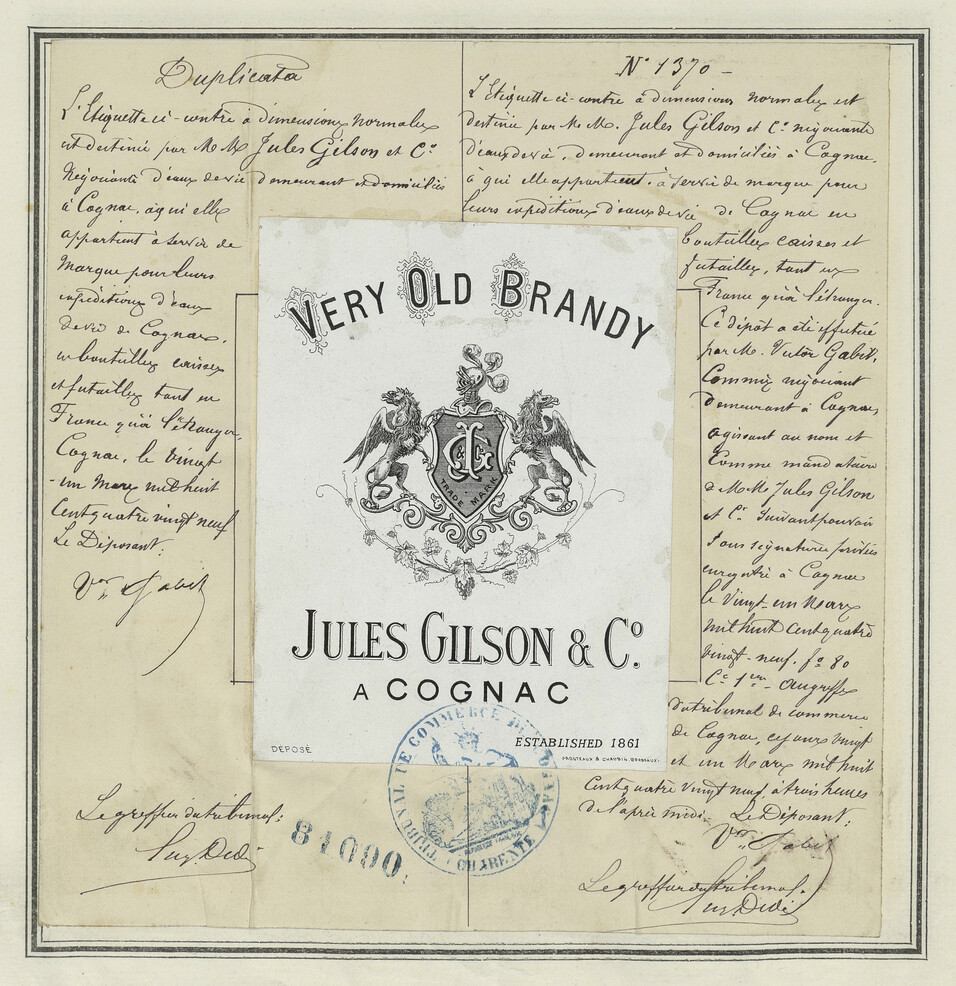 Duplicata
L'Etiquette ci-contre à dimensions normales
est destinée par M M. Jules Gilson et Cº
Négociants d'eaux de vie demeurant et domiciliés
à Cognac, à qui elle
appartient à servir de
Marque pour leurs
expéditions d'eaux
de vie de Cognac,
en bouteilles caisses
et futailles tant en
France qu'à l'étranger.
Cognac, le vingt
-un Mars mil huit
Cent quatre vingt neuf
Le Déposant:
Vor Gabit
Le greffier du tribunal:
Nº 1370 -
L'Etiquette ci-contre à dimensions normales est
destinée par M. M. Jules Gilson et Cº négociants
d'eaux de vie, demeurant et domiciliés à Cognac,
à qui elle appartient. à servir de marque pour
leurs expéditions d'eaux de vie de Cognac en
bouteilles caisses et
futailles, tant en
France qu'à l'étranger.
Ce dépôt a été effectué
par M. Victor Gabit,
Commis négociant
demeurant à Cognac
agissant au nom et
Comme mandataire
de M M Jules Gilson
et Cº suivant pouvoir
sous signatures privées
enregistré à Cognac
le vingt-un Mars
mil huit cent quatre
vingt-neuf. fº 80
Cº 1er au greffe
du tribunal de commerce
de Cognac, ce jour vingt
et un Mars mil huit
Cent quatre vingt neuf à trois heures
de l'après midi. Le Déposant:
Vor Gabit
Le greffier du tribunal:
VERY OLD BRANDY
J & G Cº
TRADE MARK
JULES GILSON & Cº.
A COGNAC
ESTABLISHED 1861
DÉPOSÉ
PROUTEAUX & CHAUBIN, BORDEAUX.
TRIBUNAL DE COMMERCE DE COGNAC
CHARENTE
84090